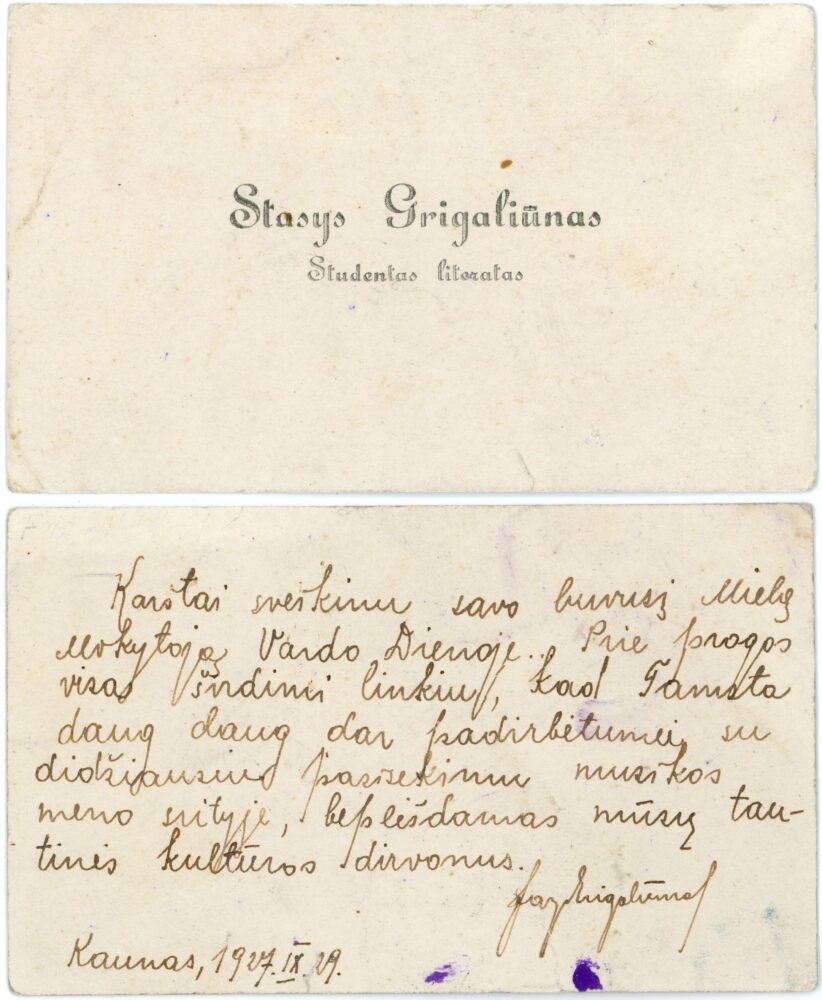 Stasys Grigaliūnas
Studentas literatas
Karštai sveikinu savo buvusį Mielą
Mokytoją Vardo Dienoje.. Prie progos
visa širdimi linkiu, kad Tamsta
daug daug dar padirbėtumei su
didžiausiu pasisekimu muzikos
meno srityje, beplėšdamas mūsų tau-
tinės kultūros dirvonus.
Kaunas, 1927.IX.29.